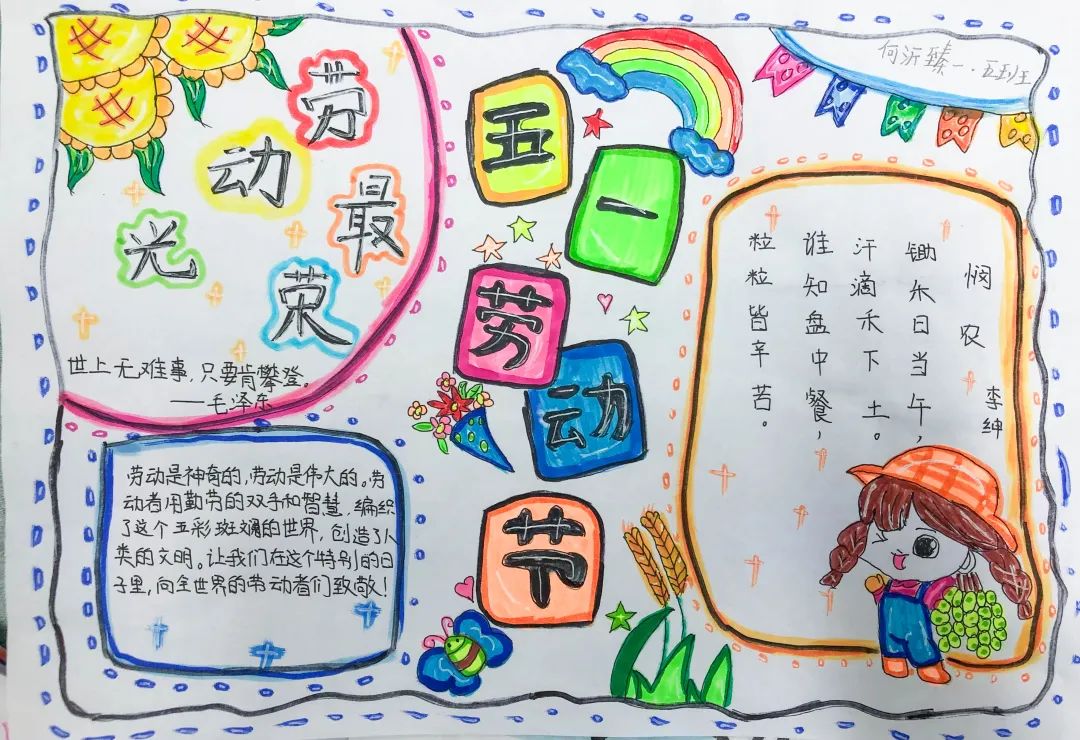 劳动最光荣
世上无难事，只要肯攀登。
——毛泽东
劳动是神奇的，劳动是伟大的。劳
动者用勤劳的双手和智慧，编织
了这个五彩斑斓的世界，创造了人
类的文明。让我们在这个特别的日
子里，向全世界的劳动者们致敬！
五一劳动节
何沂臻 一.五班
悯农
李绅
锄禾日当午，
汗滴禾下土。
谁知盘中餐，
粒粒皆辛苦。